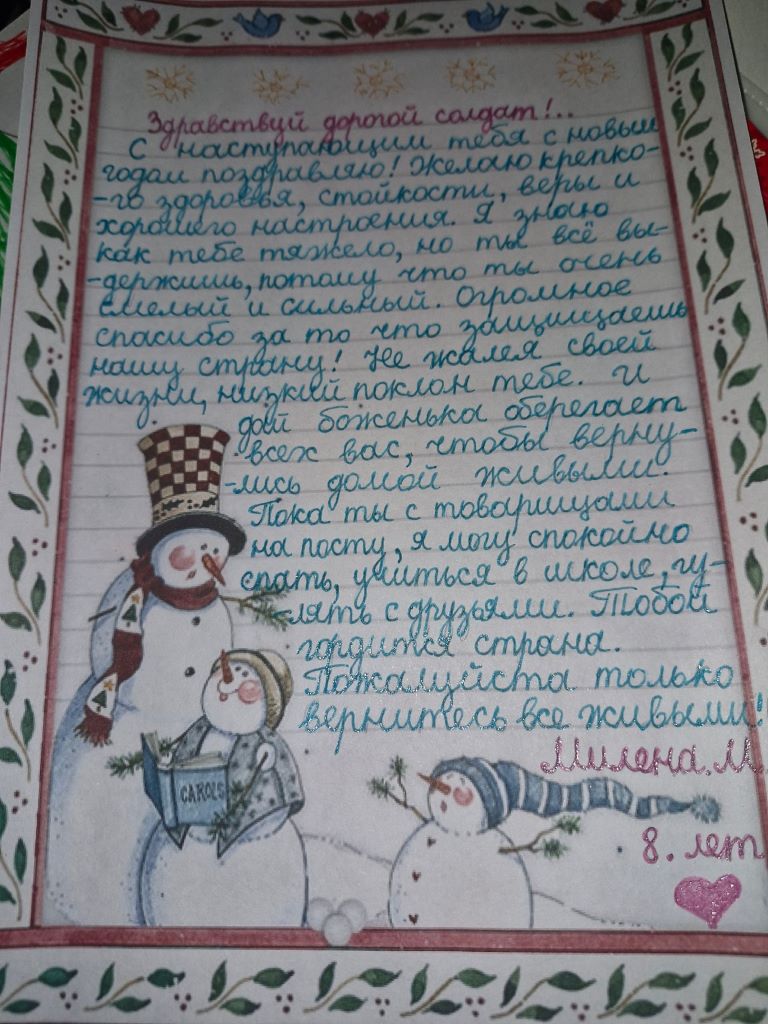 Здравствуй дорогой солдат!..
С наступающим тебя с новым
годом поздравляю! Желаю крепко-
-го здоровья, стойкости, веры и
хорошего настроения. Я знаю
как тебе тяжело, но ты всё вы-
-держишь, потому что ты очень
смелый и сильный. Огромное
спасибо за то что защищаешь
нашу страну! Не жалея своей
жизни, низкий поклон тебе. И
дай боженька оберегает
всех вас, чтобы верну-
-лись домой живыми.
Пока ты с товарищами
на посту, я могу спокойно
спать, учиться в школе, гу-
-лять с друзьями. Тобой
гордится страна.
Пожалуйста только
вернитесь все живыми!
CAROLS
Милена.М.
8. лет